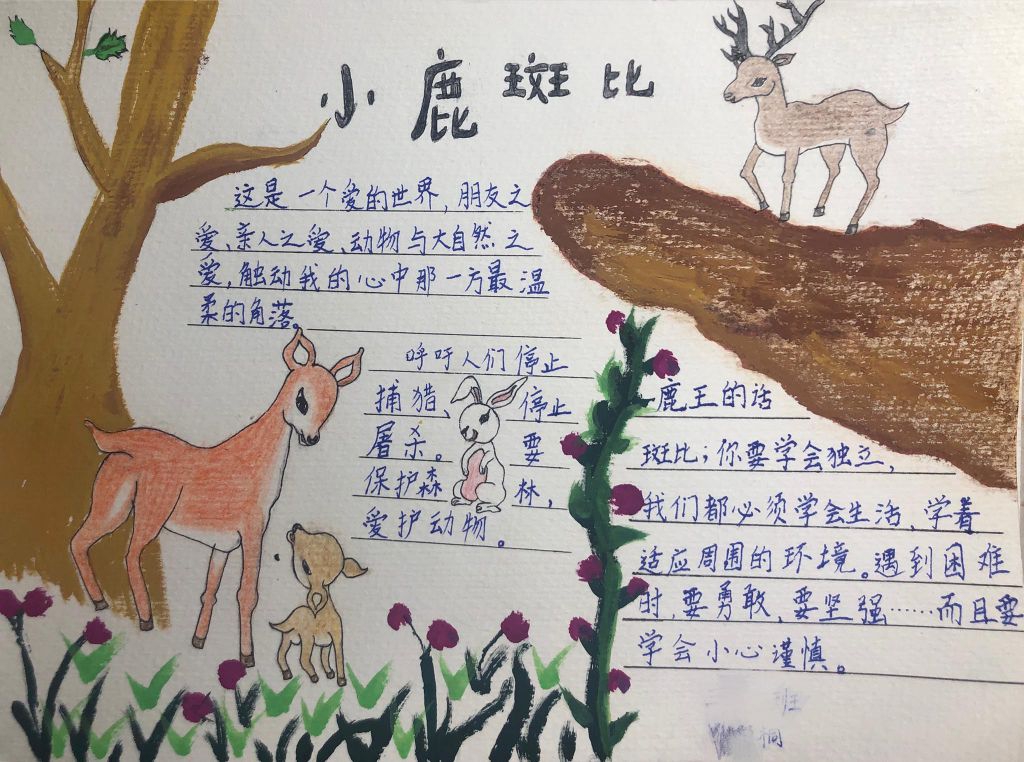 小鹿斑比
这是一个爱的世界，朋友之
爱、亲人之爱、动物与大自然之
爱，触动我的心中那一方最温
柔的角落。
呼吁人们停止
捕猎、停止
屠杀。要
保护森林，
爱护动物。
鹿王的话
斑比；你要学会独立，
我们都必须学会生活，学着
适应周围的环境。遇到困难
时，要勇敢，要坚强……而且要
学会小心谨慎。
班
桐